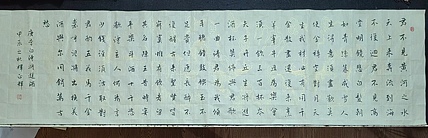 君不見黃河之水
天上來奔流到海
不復迴君不見高
堂明鏡悲白髮朝
如青絲暮成雪人
生得意須盡歡莫
使金樽空對月天
生我材必有用千
金散盡還復來烹
羊宰牛且為樂會
須一飲三百杯岑
夫子丹丘生將進
酒杯莫停與君歌
一曲請君為我傾
耳聽鐘鼓饌玉不
足貴但願長醉不
復醒古來聖賢皆
寂寞惟有飲者留
其名陳王昔時宴
平樂斗酒十千恣
歡謔主人何為言
少錢徑須沽取對
君酌五花馬千金
裘呼兒將出換美
酒與爾同銷萬古
愁
唐李白詩將進酒
甲辰之秋